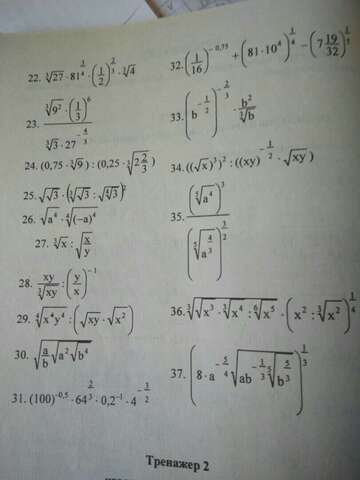 22. ∛27 · 81^(1/4) · (1/2)^(2/3) · ∛4
23. (∛(9²) · (1/3)⁶) / (∛3 · 27^(-4/3))
24. (0,75 · ∛9) : (0,25 · ∛(2 2/3))
25. √(√3) · (∛(√3) : √(∜3))²
26. √(a⁴) · ∜((−a)⁴)
27. ∛x : √(x/y)
28. xy/∛(xy) : (y/x)^(−1)
29. ∜(x⁴y⁴) : (√(xy) · √(x²))
30. √(a/b √(a² √(b⁴)))
31. (100)^(-0,5) · 64^(2/3) · 0,2^(-1) · 4^(-1/2)
32. (1/16)^(−0,75) + (81·10⁴)^(1/4) − (7 19/32)^(1/5)
33. (b^(−1/2))^(−2/3) · b²/∛b
34. ((√x)³)² : ((xy)^(−1/2) · √(xy))
35. (⁵√(a⁴))³ / (⁵√(a^(4/3)))^(3/2)
36. ∛(√(x³) · ∛(x⁴) : ⁶√(x⁵)) · (x² : ∛(x²))^(1/4)
37. (8 · a^(−5/4) √(ab^(−1/3) ⁵√(b^(5/3))))^(1/3)
Тренажер 2